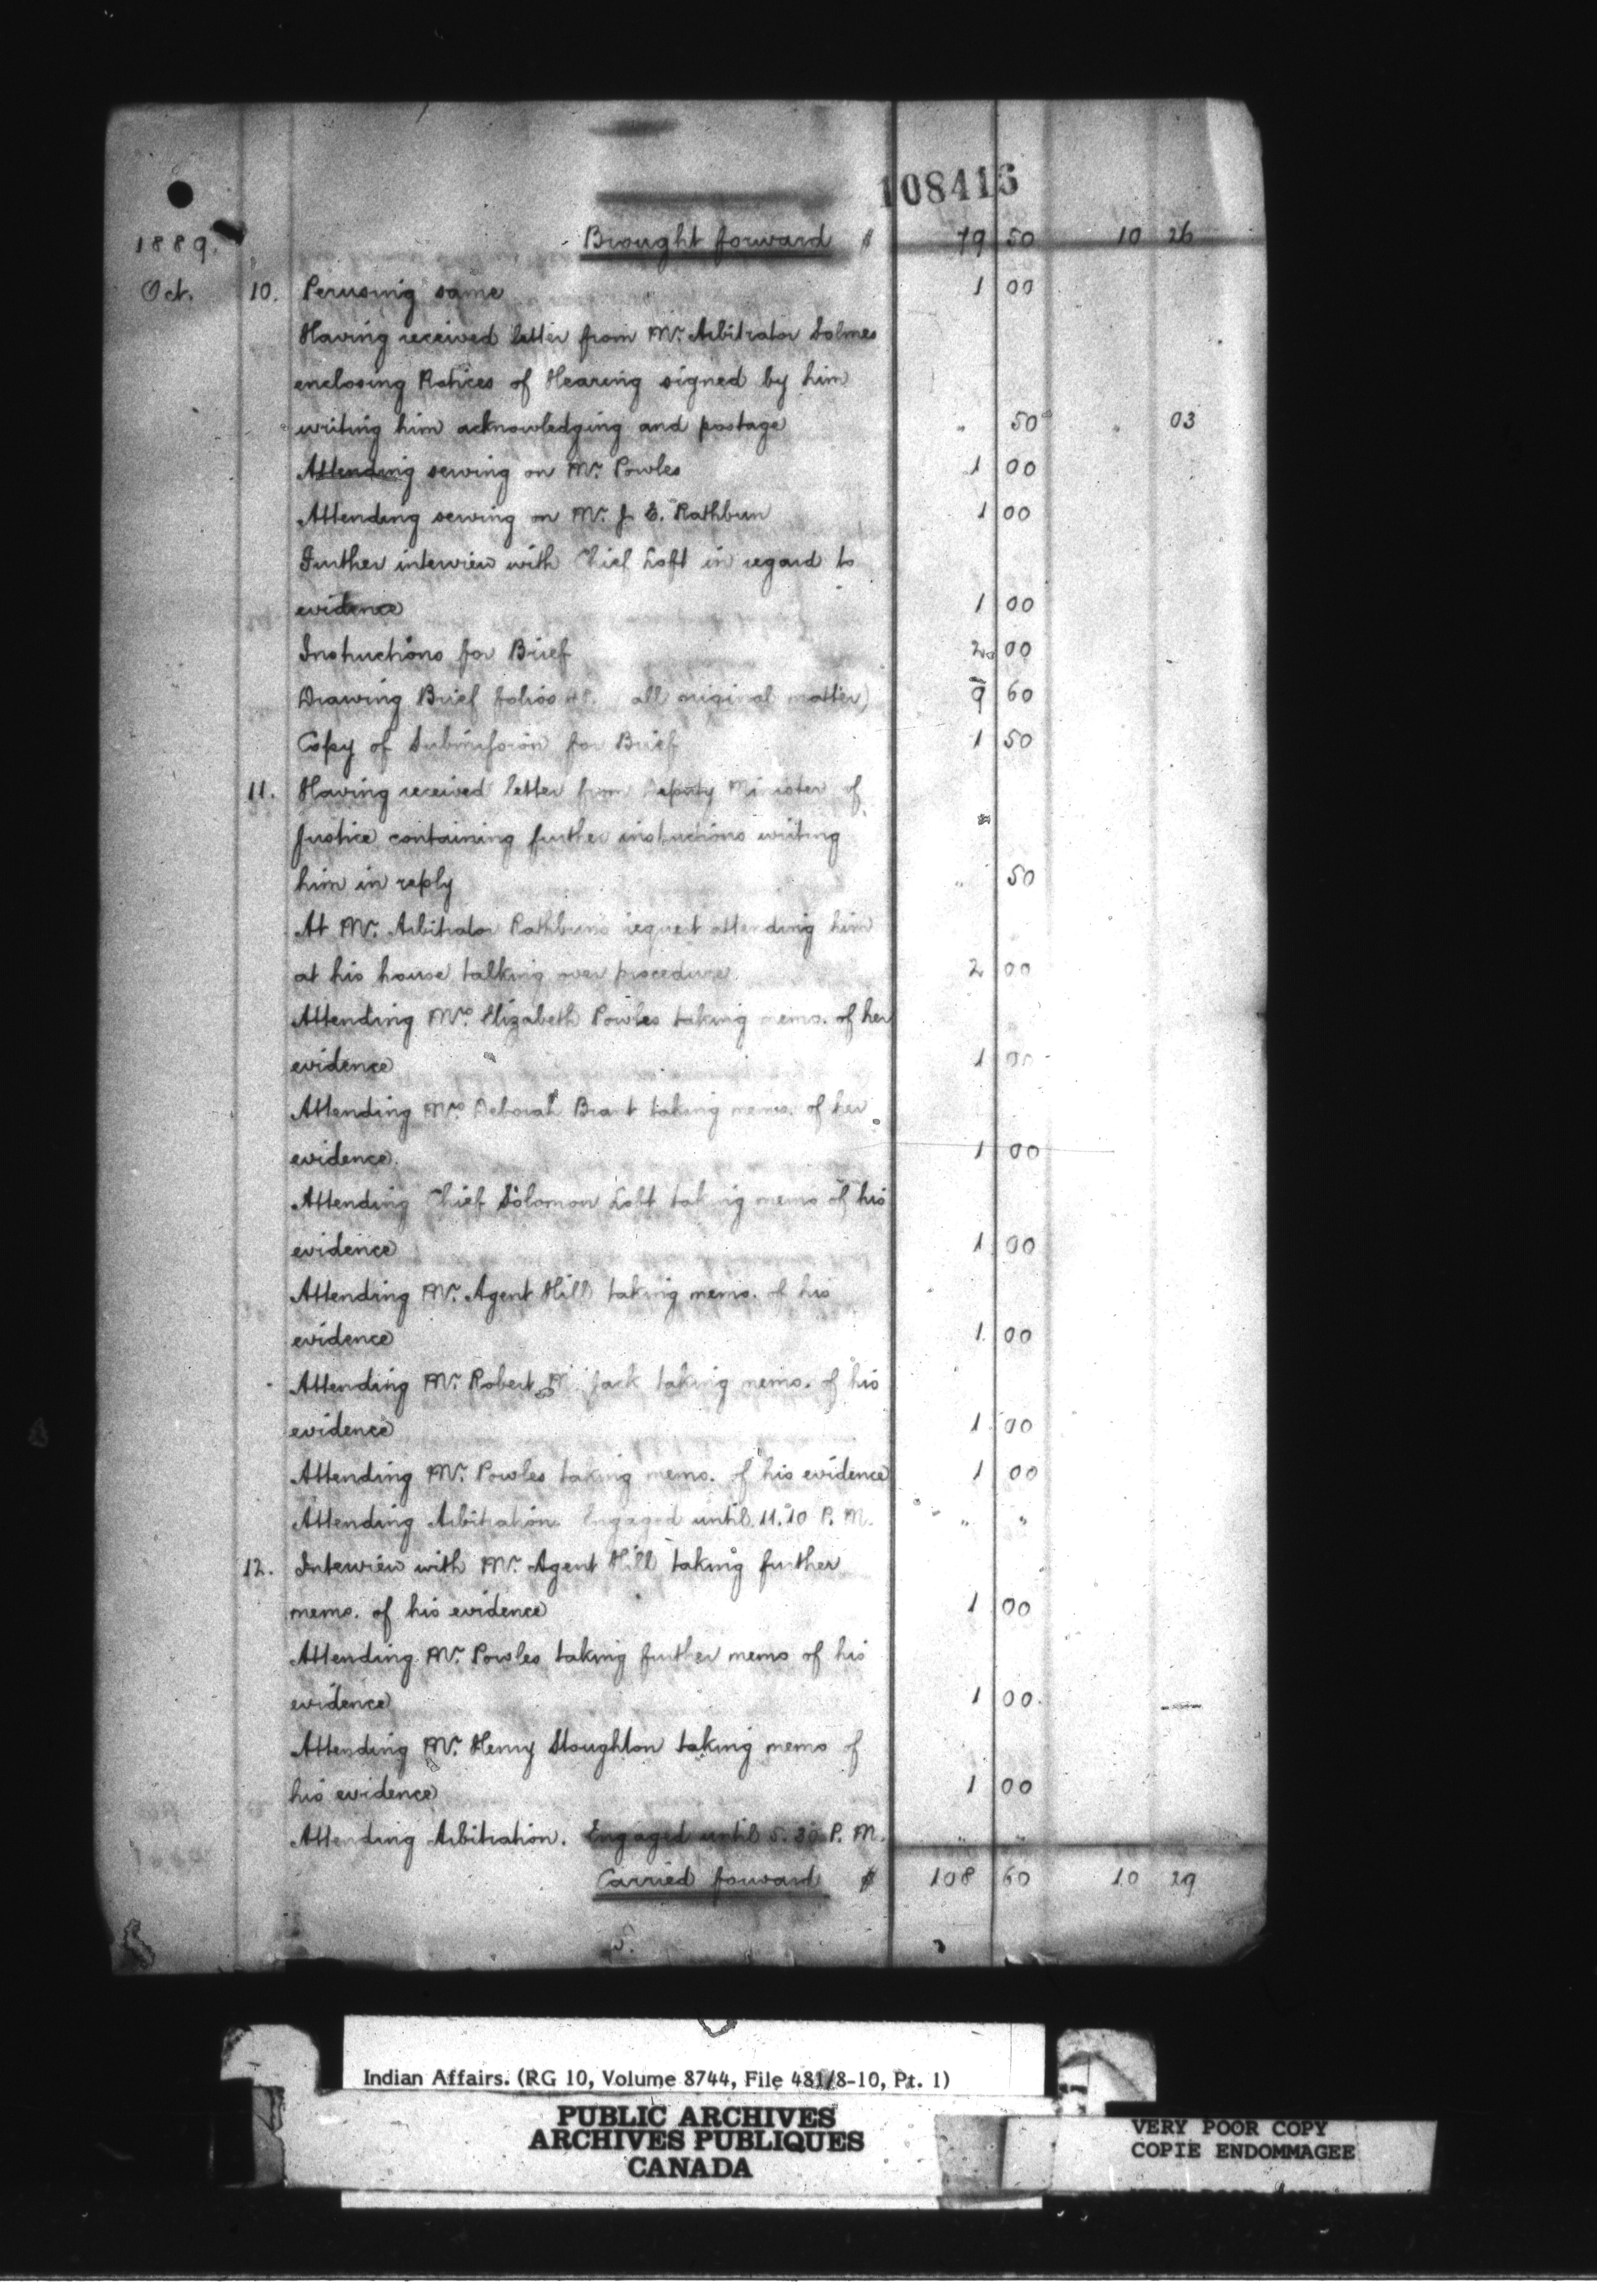 108416
1889. Brought forward $ 79 50 10 26
Oct. 10. Perusing same 1 00
Having received letter from Mr. Arbitrator Solmes
enclosing Notices of Hearing signed by him
writing him acknowledging and postage " 50 " 03
Attending serving on Mr. Powles 1 00
Attending serving on Mr. J. E. Rathbun 1 00
Further interview with Chief Loft in regard to
evidence 1 00
Instructions for Brief 2 00
Drawing Brief folios 48. all original matter) 9 60
Copy of Submission for Brief 1 50
11. Having received letter from Deputy Minister of
Justice containing further instructions writing
him in reply " 50
At Mr. Arbitrator Rathbuns request attending him
at his house talking over procedure. 2 00
Attending Mrs. Elizabeth Powles taking memo. of her
evidence 1 00
Attending Mrs. Deborah Brant taking memo. of her
evidence. 1 00
Attending Chief Solomon Loft taking memo of his
evidence 1 00
Attending Mr. Agent Hill taking memo. of his
evidence 1 00
Attending Mr. Robert Jack taking memo. of his
evidence 1 00
Attending Mr. Powles taking memo. of his evidence 1 00
Attending Arbitration. Engaged until 11.10 P. M. " "
12. Interview with Mr. Agent Hill taking further
memo. of his evidence 1 00
Attending Mr. Powles taking further memo of his
evidence 1 00
Attending Mr. Henry Stoughton taking memo of
his evidence 1 00
Attending Arbitration. Engaged until 5.30 P. M. " "
Carried forward $ 108 60 10 29
5.
Indian Affairs. (RG 10, Volume 8744, File 481/8-10, Pt. 1)
PUBLIC ARCHIVES
ARCHIVES PUBLIQUES
CANADA
VERY POOR COPY
COPIE ENDOMMAGEE